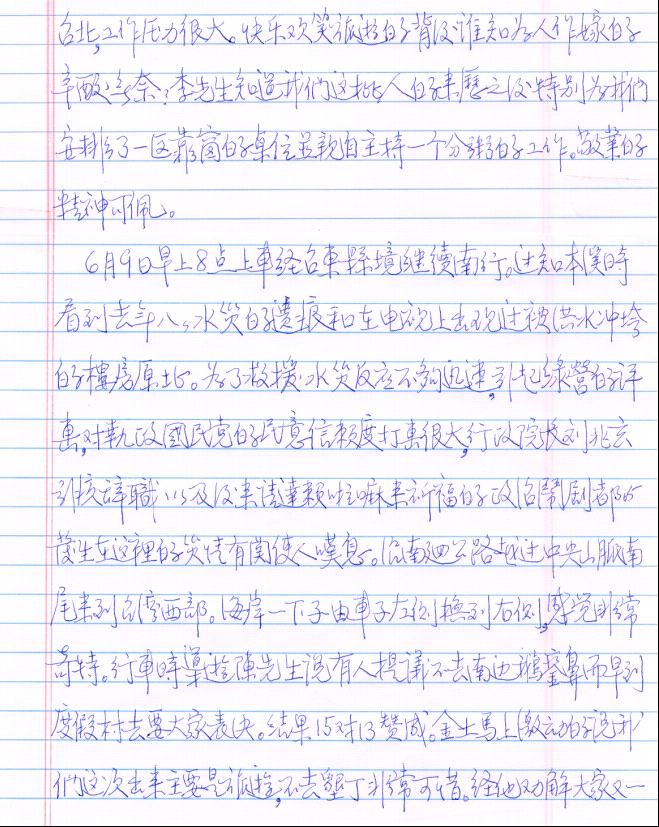 台北,工作压力很大。快乐欢笑旅遊的背後谁知为人作嫁的
辛酸无奈?李先生知道我們这批人的来歷之後特别为我們
安排了一区靠窗的桌位並親自主持一个分粥的工作。敬業的
精神可佩。
6月9日早上8点上車经台東縣境继續南行。过知本溪時
看到去年八八水災的遺痕和在电視上出现过被洪水冲垮
的樓房原址。为了救援水災反应不夠迅速,引起绿營的評
擊,对執政國民党的民意信赖度打擊很大,行政院长刘兆玄
引核辞職以及後来请達赖喇嘛来祈福的政治鬧剧都与
發生在这裡的災情有関使人嘆息。沿南迴公路越过中央山脈南
尾来到台湾西部。海岸一下子由車子左侧換到右侧,感觉非常
奇特。行車時導遊陳先生说有人提議不去南边鵝鑾鼻而早到
度假村去要大家表决。结果15对13赞成。金土馬上激动的说我
們这次出来主要是旅遊,不去墾丁非常可惜。经他劝解大家又一